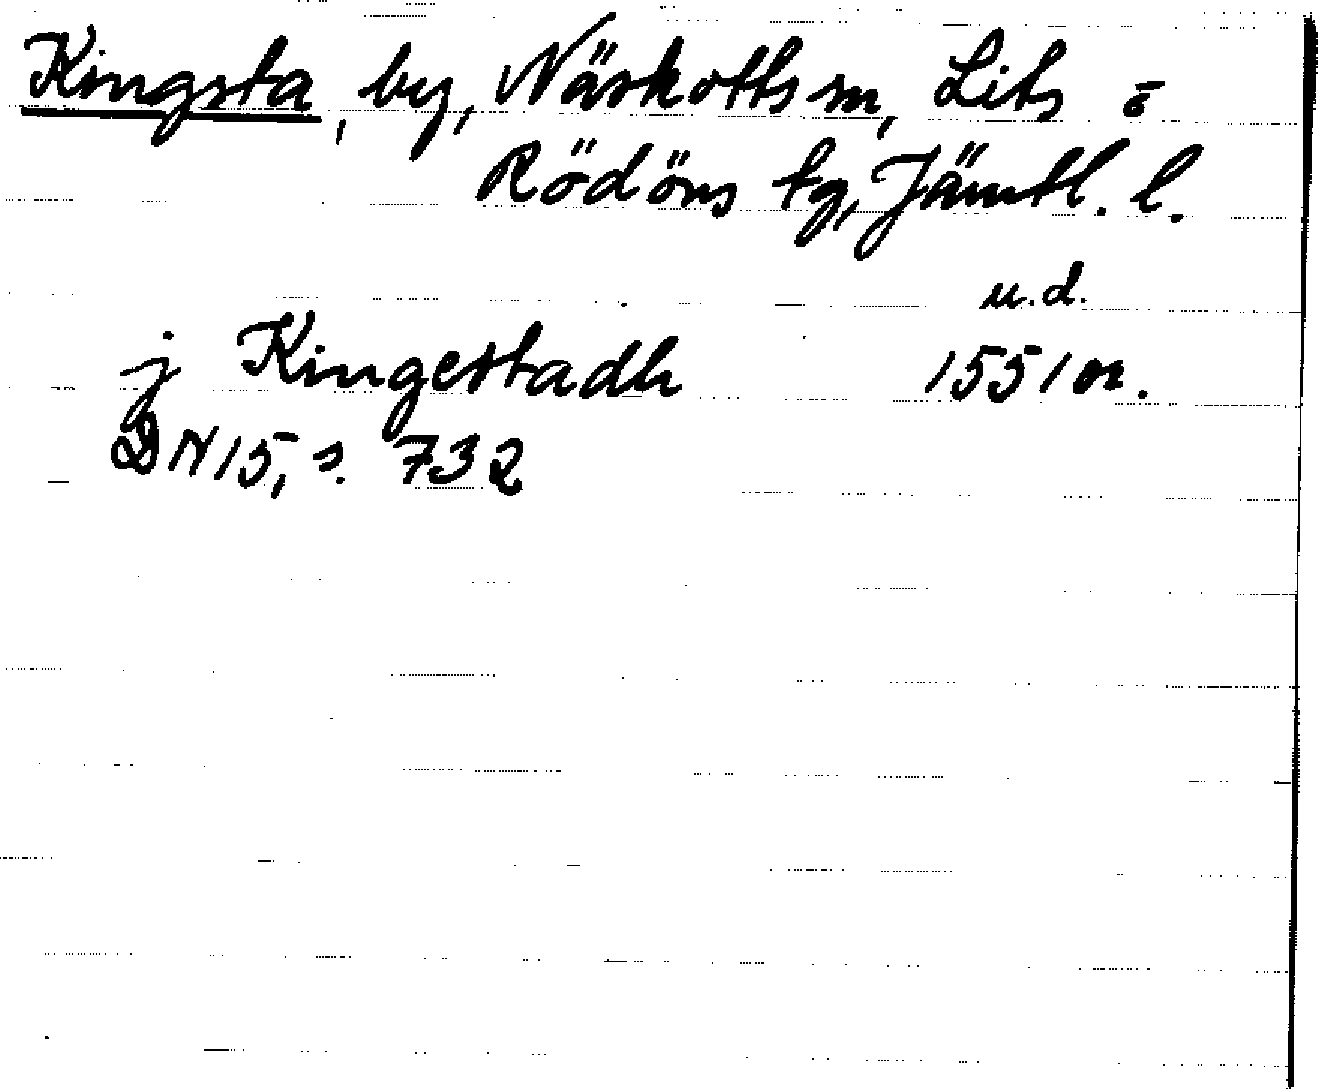 Kingsta, by, Näskotts sn, Lits o
Rödöns tg, Jämtl. l.
u.d.
j Kingestadh 1551 or.
DN 15, s. 732